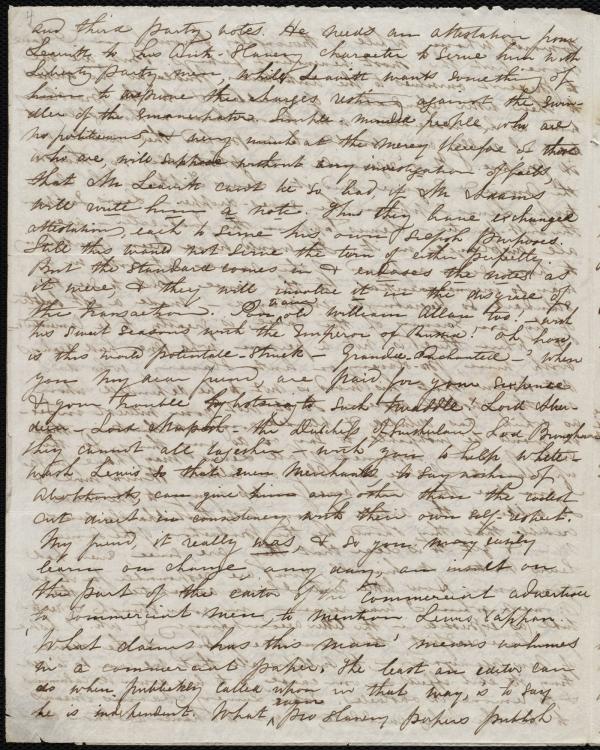 4
and third party votes. He needs an attestation from
Leavitt to his Anti-Slavery character to serve him with
Liberty party men, while Leavitt wants something of
him to disprove the charges resting against the swin-
dler of the Emancipator. Simple-minded people, who are
no politicians, & very much at the mercy therefore of those
who are, will suppose without any investigation of facts
that Mr Leavitt cant be so bad, if Mr Adams
will write him a note. Thus they have exchanged
attestations, each to serve his own selfish purposes.
Still this would not serve the turn of either perfectly.
But the Standard comes in & endorses the notes as
it were, & they will involve it in the disgrace of
the transaction. Poor old William Allen too! with
his sweet seasons with the Emperor of Russia! Oh how
is this world potentate-struck - Grandee-enchanted - when
you my dear friend, are paid for your sixpence
& your trouble by to such twaddle! Lord
Lord Morpeth - the Duchess of Sutherland, Lord Brougham
they cannot all together - with you to help white-
wash Lewis so that even Merchants to say nothing of
abolitionists, can give him any other than the coolest
cut direct in consistency with their own self-respect.
My friend, it really was & so you may easily
learn on change any day, an insult on
the part of the editor of the Commercial advertiser
to commercial men, to mention Lewis Tappan
'What claims has this man' means volumes
in a commercial paper. The least an editor can
do when publickly called upon in that way, is to say
he is independent. What pro slavery papers publish